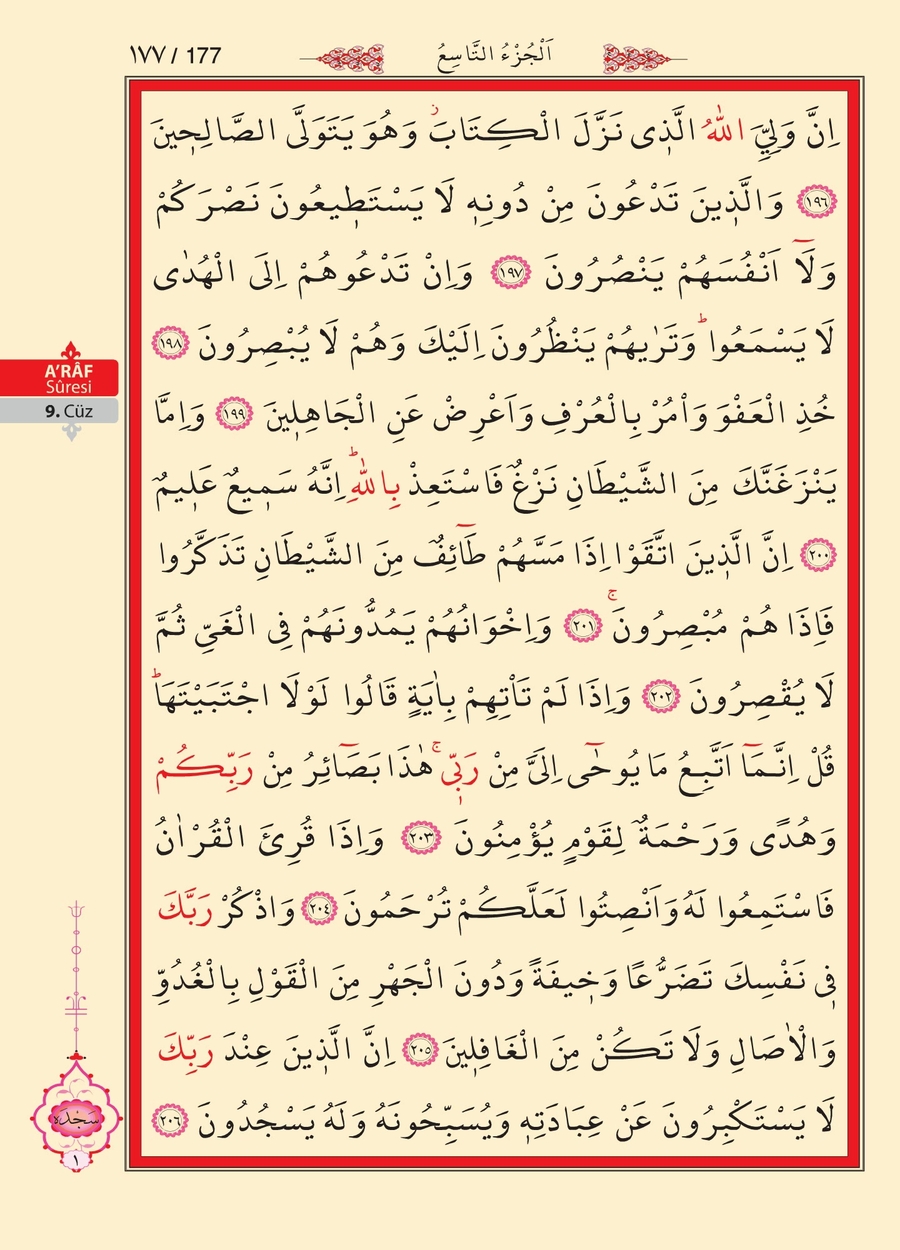 ١٧٧ / 177
اَلْجُزْءُ التَّاسِعُ
اِنَّ وَلِيِّيَ اللّٰهُ الَّذ۪ى نَزَّلَ الْكِتَابَۘ وَهُوَ يَتَوَلَّى الصَّالِح۪ينَ
﴿١٩٦﴾ وَالَّذ۪ينَ تَدْعُونَ مِنْ دُونِه۪ لَا يَسْتَط۪يعُونَ نَصْرَكُمْ
وَلَٓا اَنْفُسَهُمْ يَنْصُرُونَ ﴿١٩٧﴾ وَاِنْ تَدْعُوهُمْ اِلَى الْهُدٰى
لَا يَسْمَعُواۜ وَتَرٰيهُمْ يَنْظُرُونَ اِلَيْكَ وَهُمْ لَا يُبْصِرُونَ ﴿١٩٨﴾
خُذِ الْعَفْوَ وَاْمُرْ بِالْعُرْفِ وَاَعْرِضْ عَنِ الْجَاهِل۪ينَ ﴿١٩٩﴾ وَاِمَّا
يَنْزَغَنَّكَ مِنَ الشَّيْطَانِ نَزْغٌ فَاسْتَعِذْ بِاللّٰهِۜ اِنَّهُ سَم۪يعٌ عَل۪يمٌ
﴿٢٠٠﴾ اِنَّ الَّذ۪ينَ اتَّقَوْا اِذَا مَسَّهُمْ طَٓائِفٌ مِنَ الشَّيْطَانِ تَذَكَّرُوا
فَاِذَا هُمْ مُبْصِرُونَۚ ﴿٢٠١﴾ وَاِخْوَانُهُمْ يَمُدُّونَهُمْ فِى الْغَىِّ ثُمَّ
لَا يُقْصِرُونَ ﴿٢٠٢﴾ وَاِذَا لَمْ تَاْتِهِمْ بِاٰيَةٍ قَالُوا لَوْلَا اجْتَبَيْتَهَاۜ
قُلْ اِنَّمَٓا اَتَّبِعُ مَا يُوحٰٓى اِلَىَّ مِنْ رَبّ۪ىۚ هٰذَا بَصَٓائِرُ مِنْ رَبِّكُمْ
وَهُدًى وَرَحْمَةٌ لِقَوْمٍ يُؤْمِنُونَ ﴿٢٠٣﴾ وَاِذَا قُرِئَ الْقُرْاٰنُ
فَاسْتَمِعُوا لَهُ وَاَنْصِتُوا لَعَلَّكُمْ تُرْحَمُونَ ﴿٢٠٤﴾ وَاذْكُرْ رَبَّكَ
ف۪ى نَفْسِكَ تَضَرُّعًا وَخ۪يفَةً وَدُونَ الْجَهْرِ مِنَ الْقَوْلِ بِالْغُدُوِّ
وَالْاٰصَالِ وَلَا تَكُنْ مِنَ الْغَافِل۪ينَ ﴿٢٠٥﴾ اِنَّ الَّذ۪ينَ عِنْدَ رَبِّكَ
لَا يَسْتَكْبِرُونَ عَنْ عِبَادَتِه۪ وَيُسَبِّحُونَهُ وَلَهُ يَسْجُدُونَ ﴿٢٠٦﴾
A'RÂF
Sûresi
9. Cüz
سَجْدَه
١